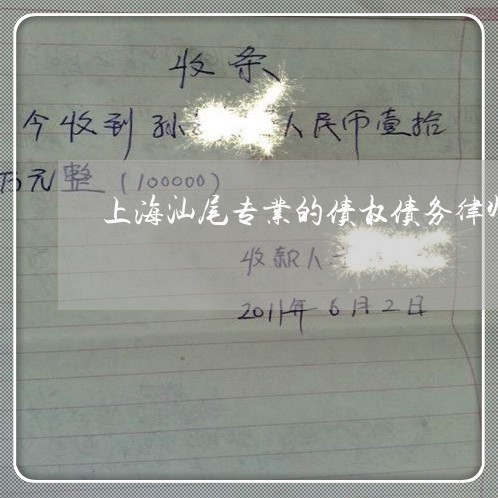 收条
今收到孙 人民币壹拾
万元整（100000）
上海汕尾专業的债权债务律师
收款人
2011年6月2日